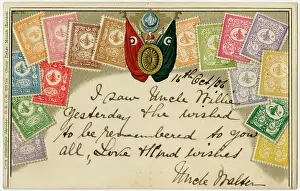 16th Oct/06
I saw Uncle Willie
Yesterday & he wished
to be remembered to you
all, Love & kind wishes
Uncle Walter